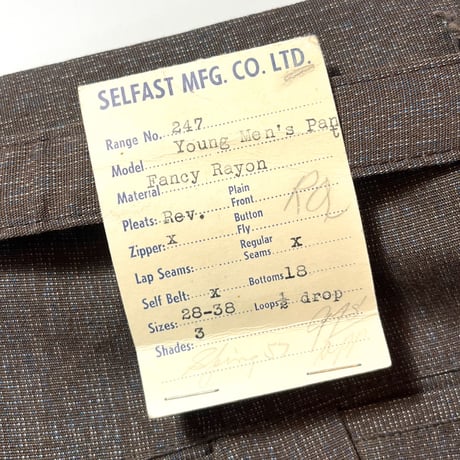 SELFAST MFG. CO. LTD.
Range No. 247
Model Young Men's Pant
Material Fancy Rayon
Pleats: Rev. Plain Front
Zipper: x Button Fly
Lap Seams: Regular Seams x
Self Belt: x Bottoms 18
Sizes: 28-38 Loops ½ drop
Shades: 3
Spring 57